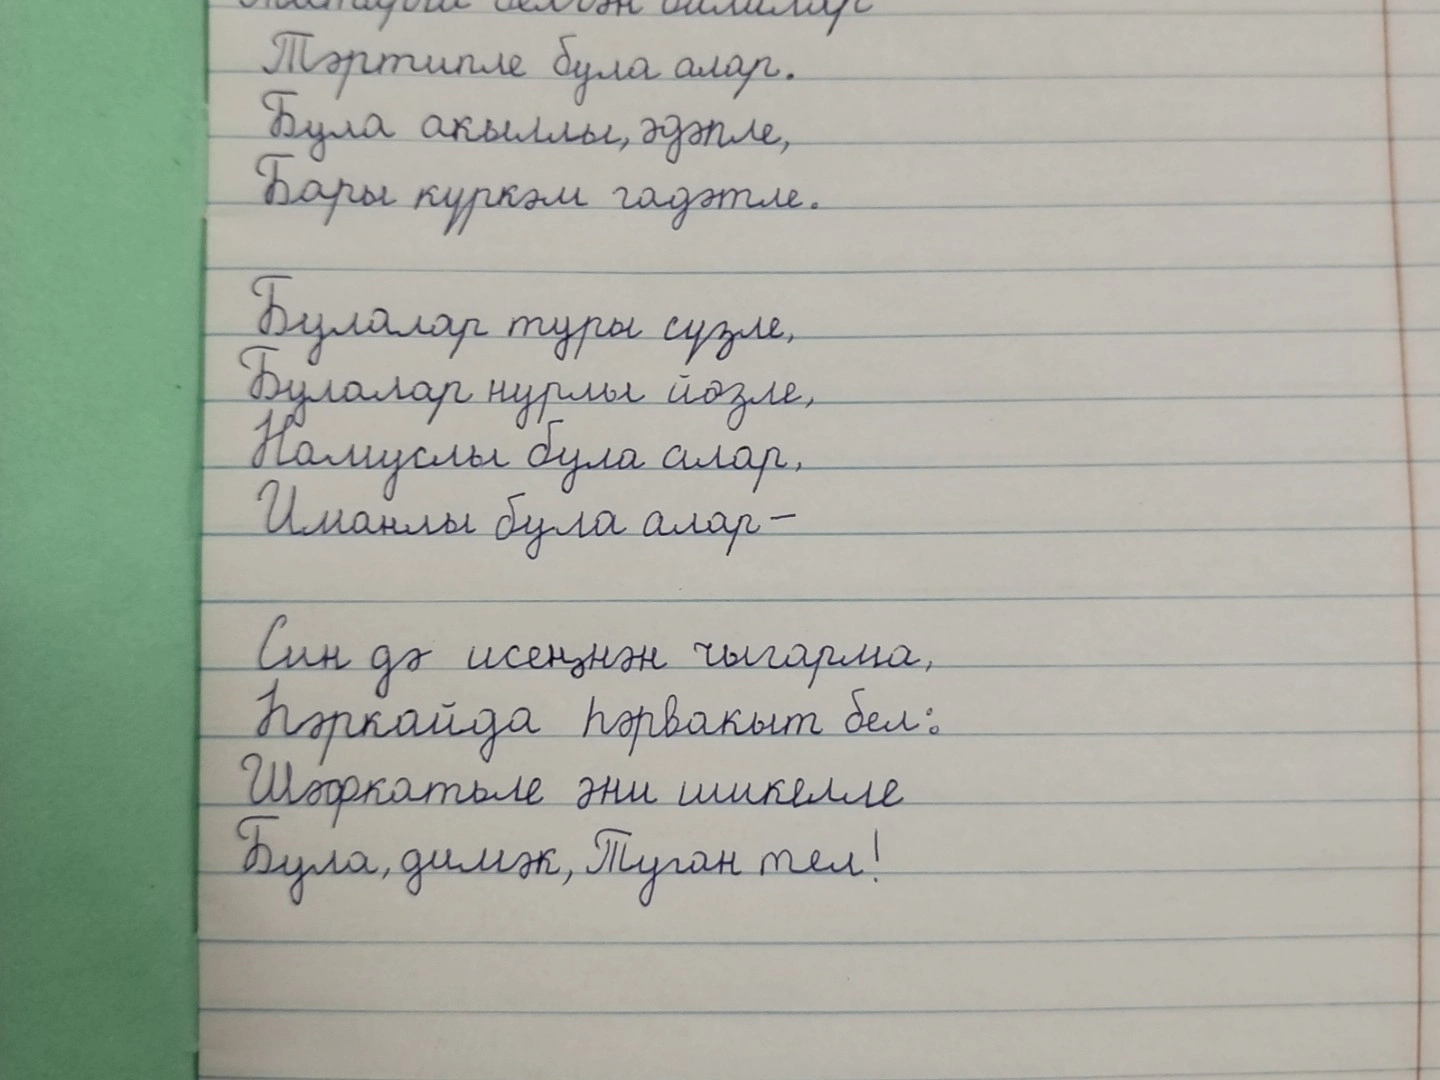 белгән балалар
Тәртипле була алар.
Була акыллы, әдәпле,
Бары күркәм гадәтле.
Булалар туры сүзле,
Булалар нурлы йөзле,
Намуслы була алар,
Иманлы була алар—
Син дә исеңнән чыгарма,
Һәркайда һәрвакыт бел:
Шәфкатьле әни шикелле
Була, димәк, Туган тел!